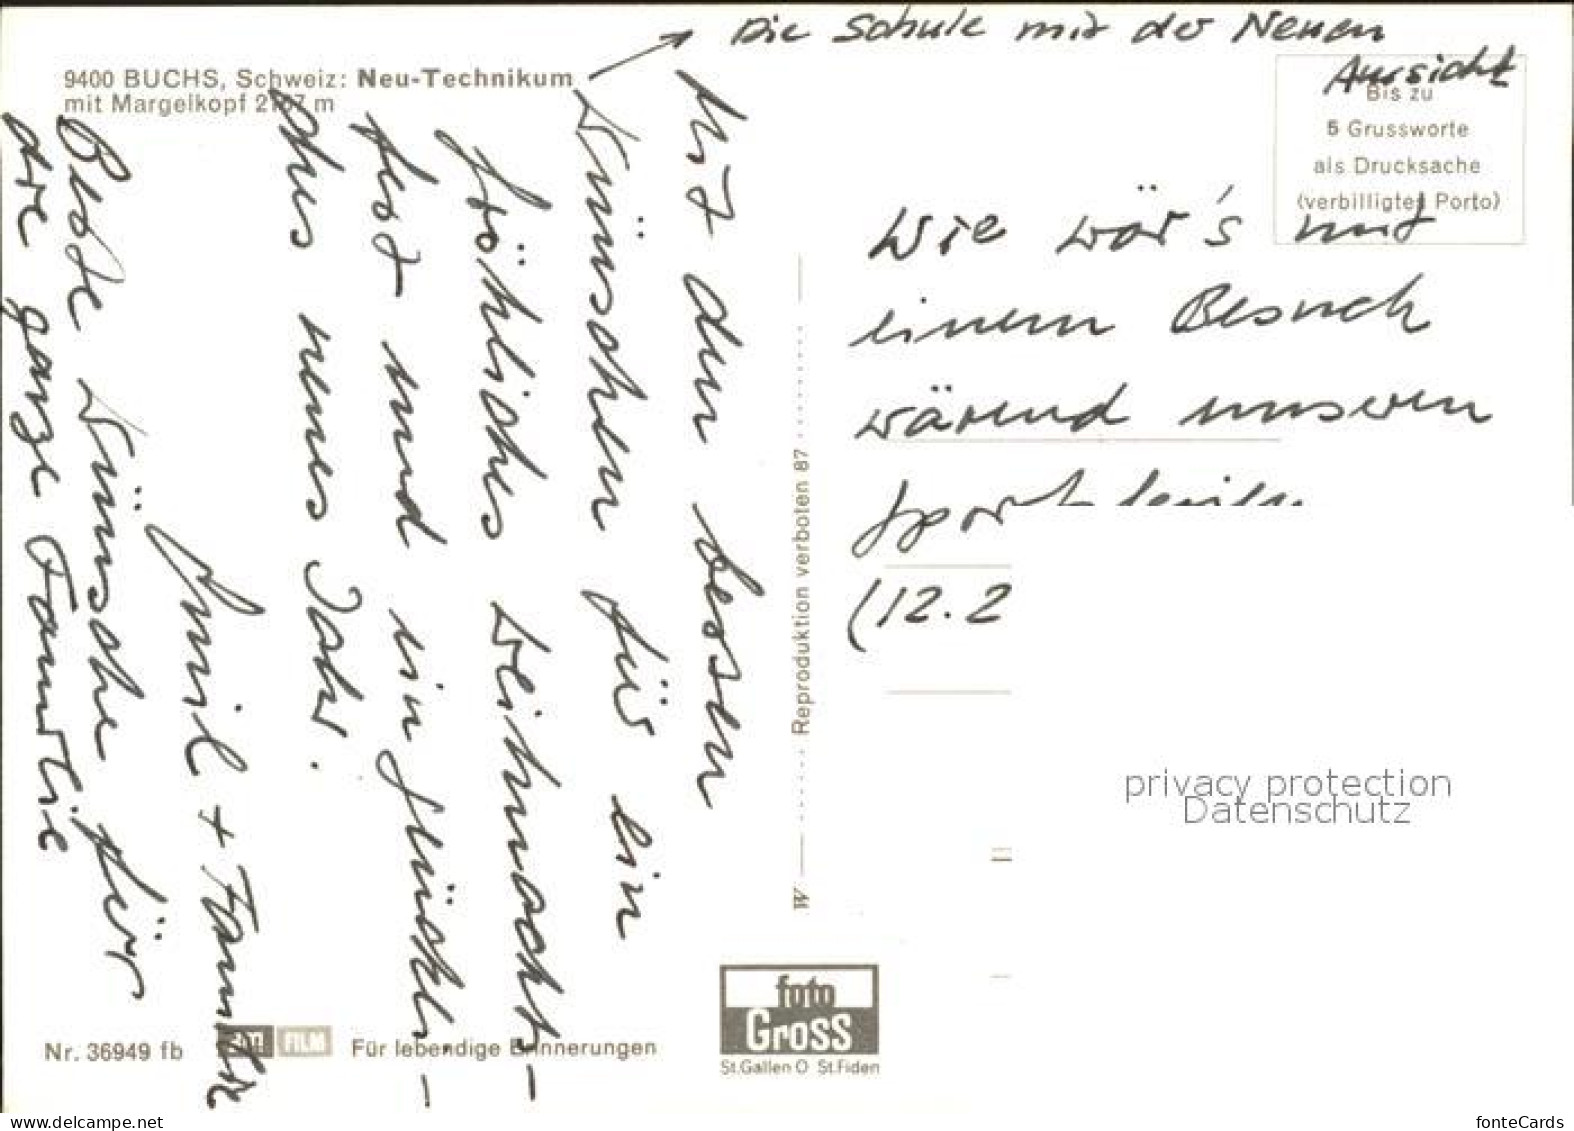 Die Schule mit der Neuen
Aussicht
9400 BUCHS, Schweiz: Neu-Technikum
mit Margelkopf 2167 m
Bis zu
5 Grussworte
als Drucksache
(verbilligtes Porto)
Mit den besten
Wünschen für ein
fröhliches Weihnachts-
fest und ein glückli-
ches neues Jahr.
Emil + Familie
Beste Wünsche für
die ganze Familie
Wie wär's mit
einem Besuch
wärend unseren
Sportferien
(12.2
W Reproduktion verboten 87
privacy protection
Datenschutz
foto
Gross
St.Gallen O St.Fiden
Nr. 36949 fb
FILM
Für lebendige Erinnerungen
www.delcampe.net
fonteCards